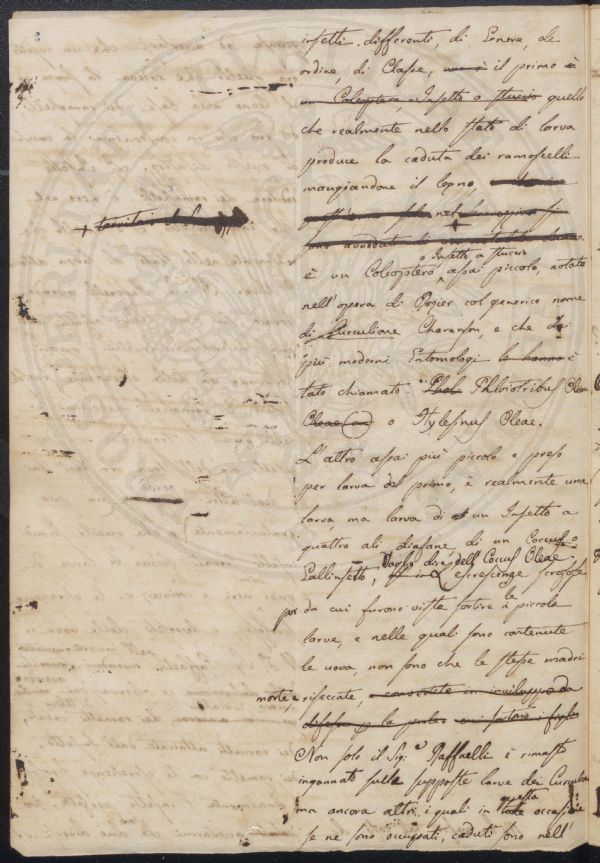 insetti differenti, di Genere, di
ordine, di Classe, il primo è
un Coleoptera o Insetto a stuccio quello
che realmente nello stato di larva
produce la caduta dei ramoscelli
mangiandone il legno,
+
o Insetto a stuccio
è un Coleoptero assai piccolo, notato
nell'opera di Rozier col generico nome
di Curculione Charanson, e che dai
più moderni Entomologi le hanno è
tato chiamato Phloiotribus Oleae
Oleae o Hylesinus Oleae.
L'altro assai più piccolo e preso
per larva del primo, è realmente una
larva, ma larva di un Insetto a
quattro ali diafane, di un Coccus o
Gallinsetto, Voglio dire dell' Coccus Oleae
Le escrescenze scrofose
poi da cui furono viste sortire le piccole
larve, e nelle quali sono contenute
le uova, non sono che le stesse madri
morte, e riseccate, conosciute in inviluppo da
difesa
Non solo il Sig.e Raffaelli è rimasto
ingannato sulle supposte larve dei Curculi
ma ancora altri i quali in questa occasione
se ne sono occupati, caduti sono nell'